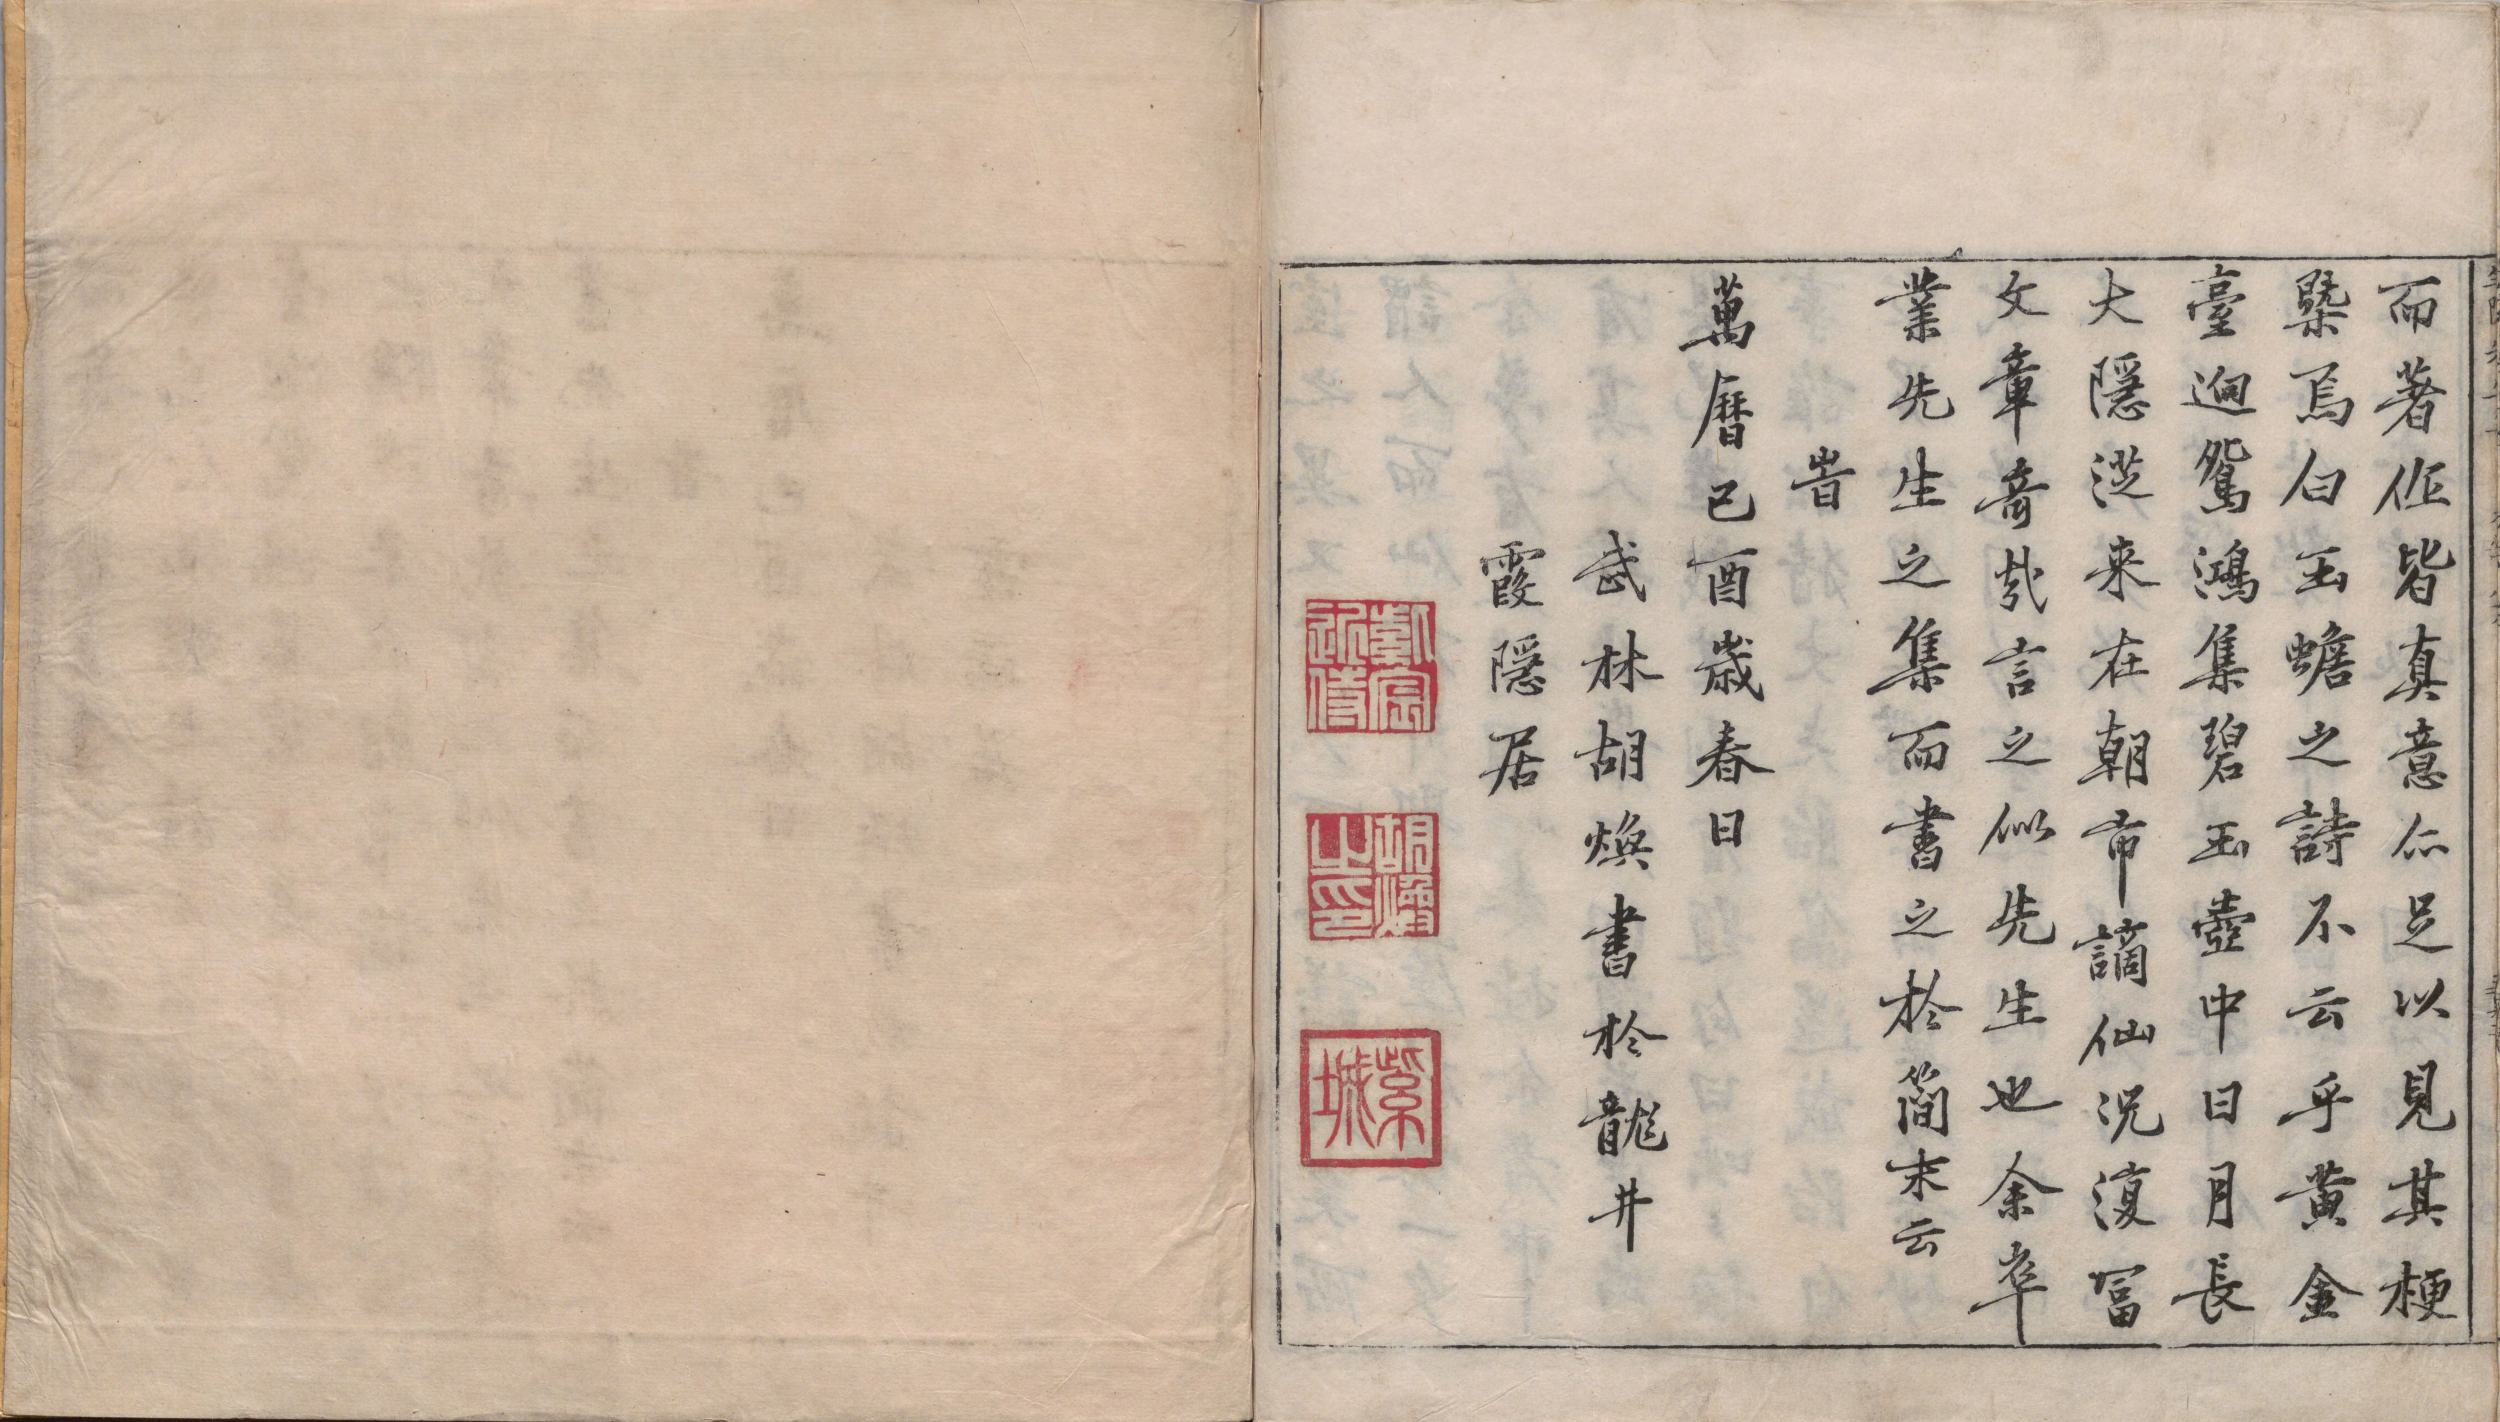 而著作皆真意亦足以見其梗
槩焉白玉蟾之詩不云乎黃金
臺迥鴛鴻集碧玉壺中日月長
大隱從来在朝市謫仙況復富
文章奇哉言之似先生也余卒
業先生之集而書之於簡末云
旹
萬曆己酉歲春日
武林胡煥書於龍井
霞隱居
胡煥之印
紫城